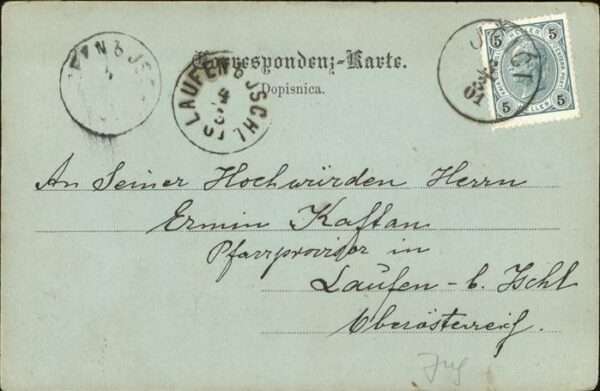 Correspondenz-Karte.
Dopisnica.
LAUFEN b. JSCHL
5 5
5 5
HELLER
01
An Seiner Hochwürden Herrn
Ermin Kaftan
Pfarrprovisor in
Laufen - b. Ischl
Oberösterreich.